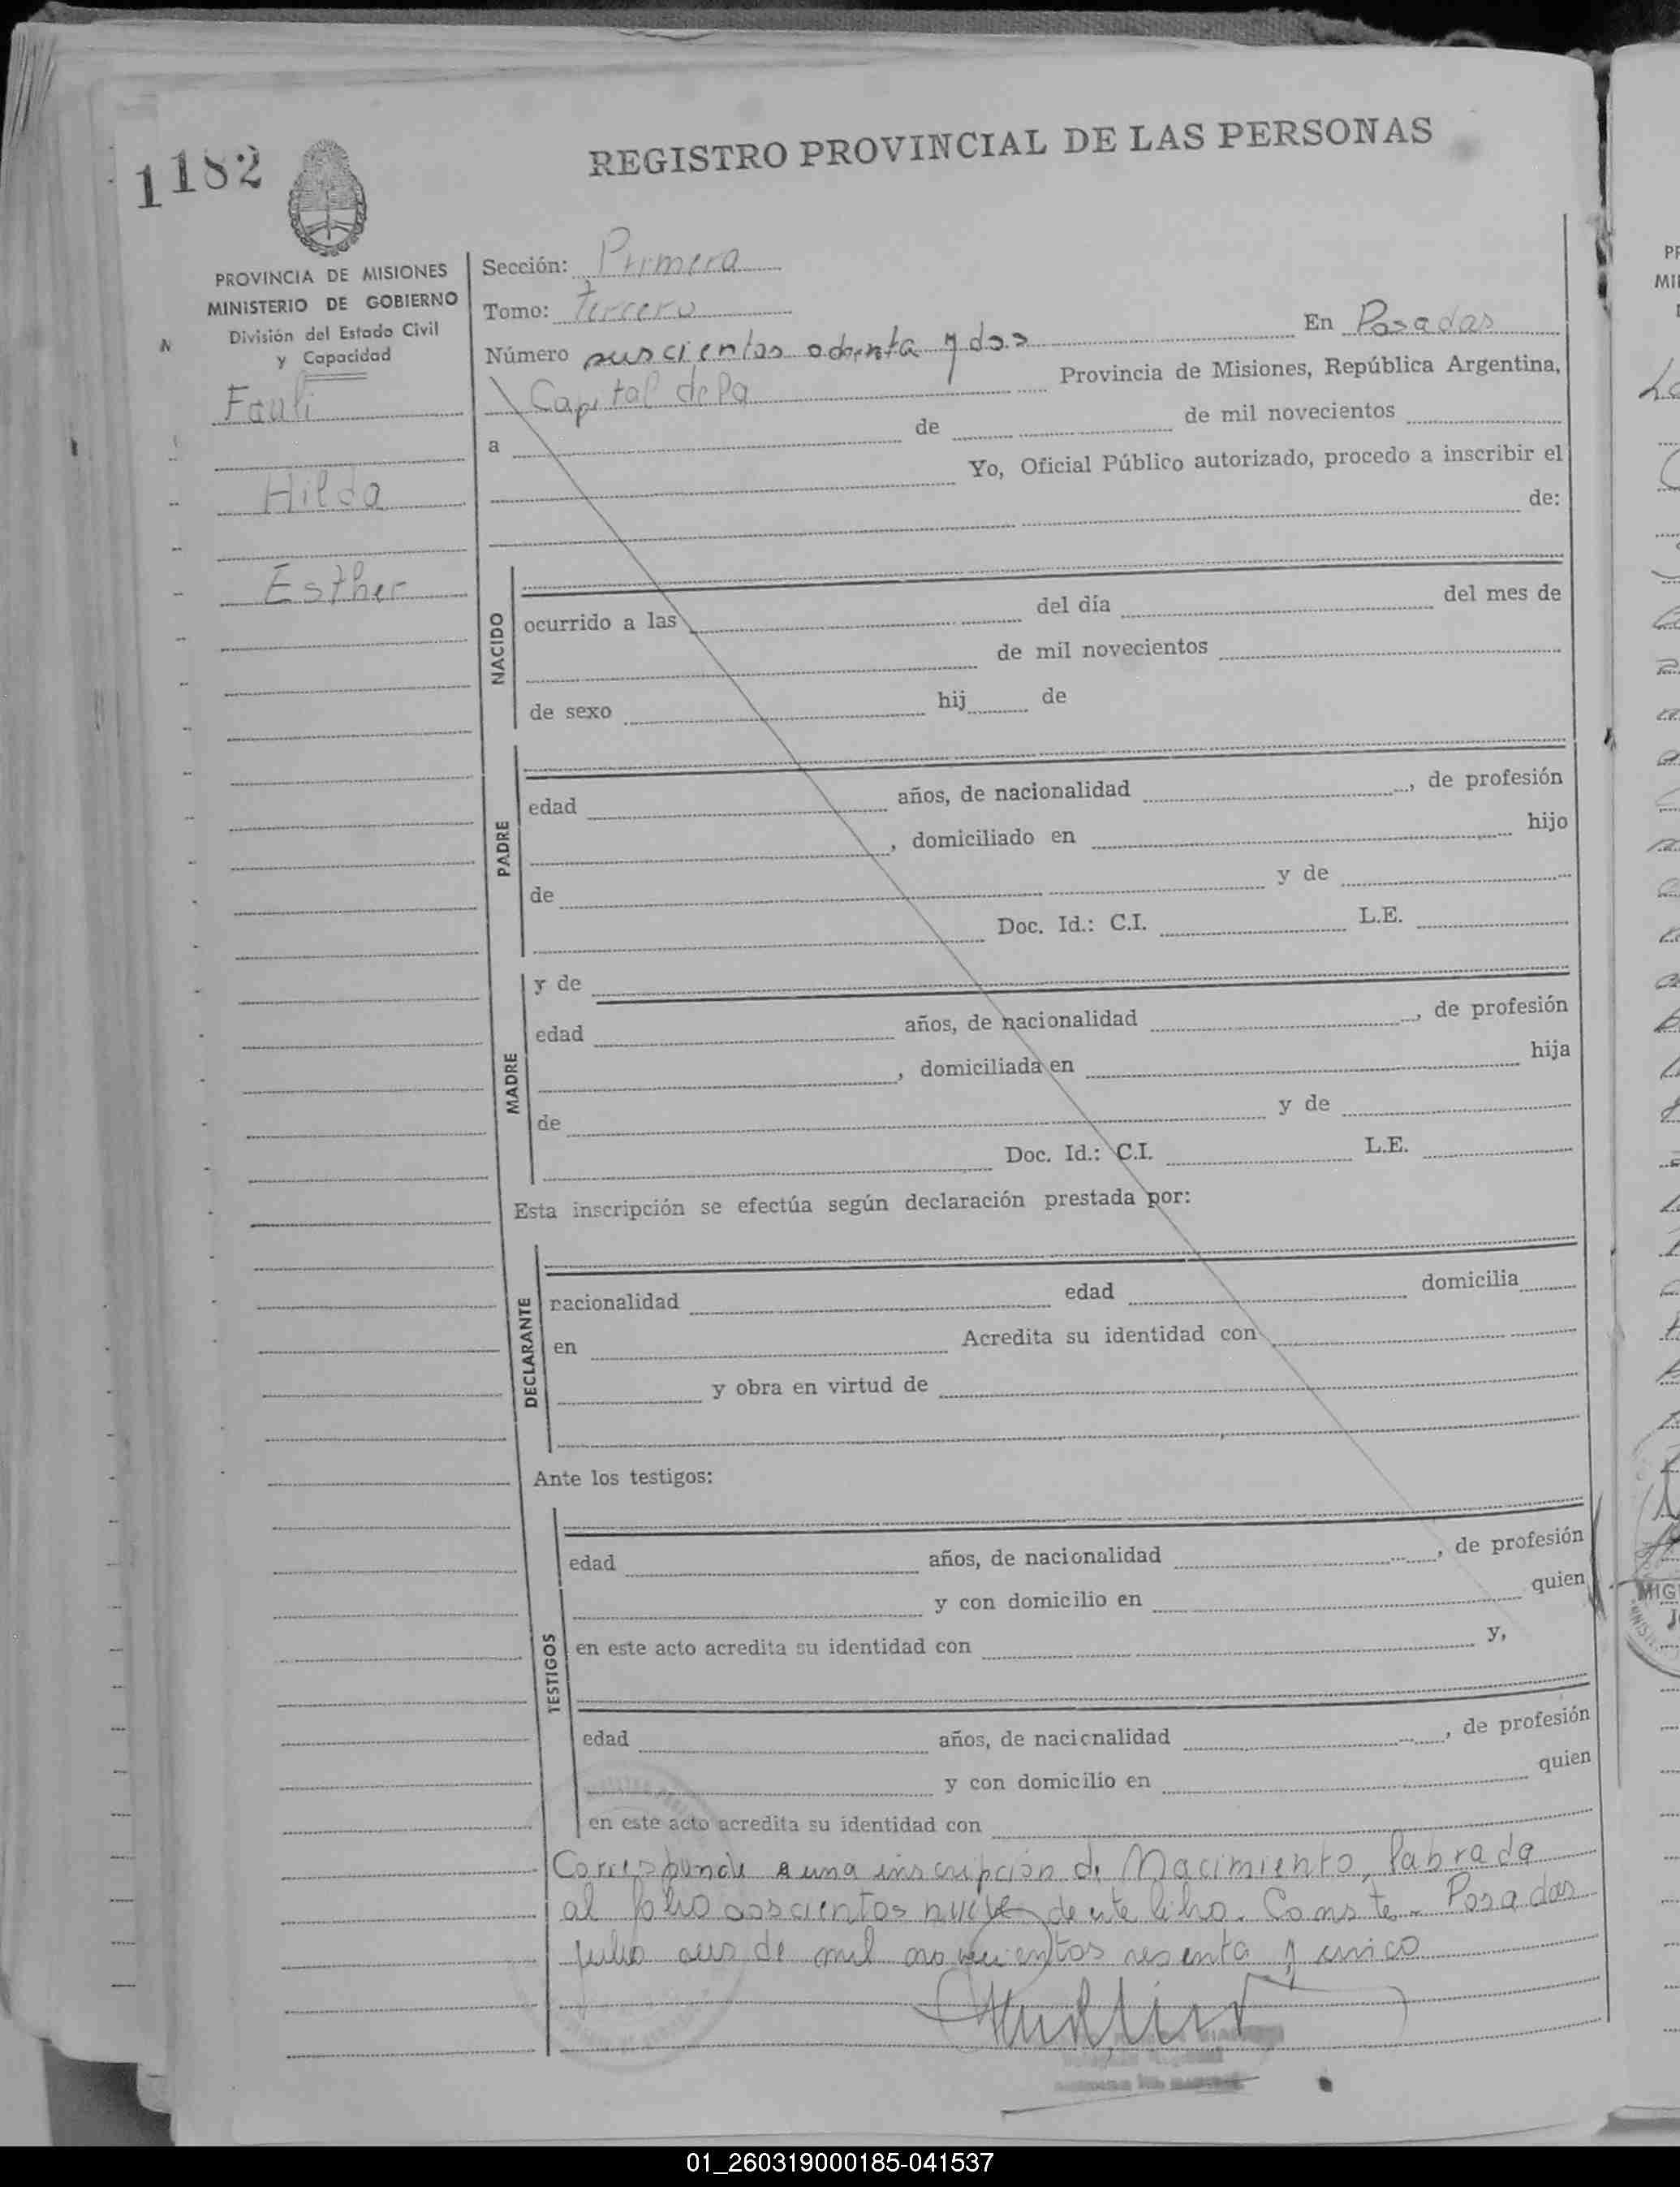 1182
REGISTRO PROVINCIAL DE LAS PERSONAS
PROVINCIA DE MISIONES
MINISTERIO DE GOBIERNO
División del Estado Civil
y Capacidad
Fouli
Hilda
Esther
Sección: Primera
Tomo: Tercero
Número suscientos ochenta y dos En Posadas
Capital de la Provincia de Misiones, República Argentina,
a de de mil novecientos
Yo, Oficial Público autorizado, procedo a inscribir el
de:
NACIDO
ocurrido a las del día del mes de
de mil novecientos
de sexo hij de
PADRE
edad años, de nacionalidad , de profesión
, domiciliado en hijo
de y de
Doc. Id.: C.I. L.E.
MADRE
y de
edad años, de nacionalidad , de profesión
, domiciliada en hija
de y de
Doc. Id.: C.I. L.E.
Esta inscripción se efectúa según declaración prestada por:
DECLARANTE
nacionalidad edad domicilia
en Acredita su identidad con
y obra en virtud de
Ante los testigos:
TESTIGOS
edad años, de nacionalidad , de profesión
y con domicilio en quien
en este acto acredita su identidad con y,
edad años, de nacionalidad , de profesión
y con domicilio en quien
en este acto acredita su identidad con
Corresponde a una inscripción de Nacimiento, labrada
al folio doscientos nueve de este libro. Conste. Posadas
julio seis de mil novecientos sesenta y cinco
01_260319000185-041537